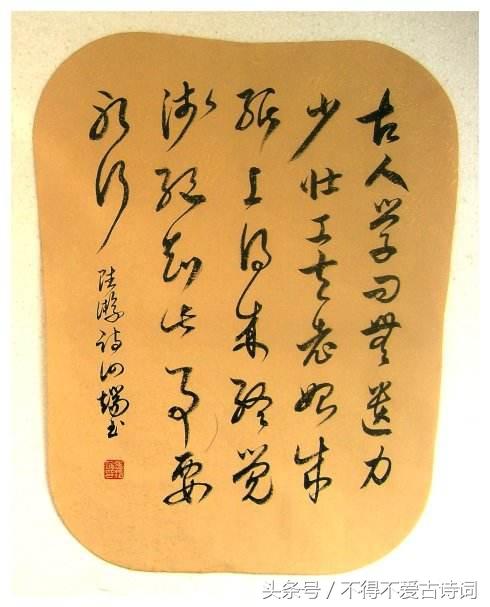 古人学问無遗力
少壮工夫老始成
纸上得来终觉
浅绝知此事要
躬行
陆游诗 端书
头条号 / 不得不爱古诗词